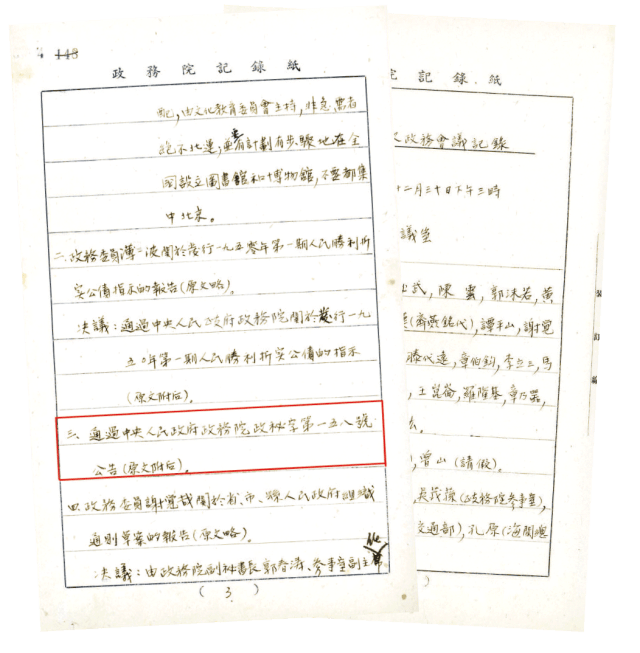 148
政務院記錄紙
配，由文化教育委員會主持，非急需者
絕不北運，要有計劃有步驟地在全
國設立圖書館和博物館，不要都集
中北京。
二、政務委員薄一波關於發行一九五零年第一期人民勝利折
實公債指示的報告(原文略)。
決議：通過中央人民政府政務院關於發行一九
五〇年第一期人民勝利折實公債的指示
(原文附后)。
三、通過中央人民政府政務院政秘字第一五八號
公告(原文附后)。
四、政務委員謝覺哉關於省、市、縣人民政府組織
通則草案的報告(原文略)。
決議：由政務院副秘書長郭春濤、參事室副主
( 3 )
記錄紙
政務會議記錄
十二月三十日下午三時
議室
武，陳雲，郭沫若，黃
(齊燕銘代)，譚平山，謝覺
滕代遠，章伯鈞，李立三，馬
，王崑崙，羅隆基，章乃器，
，曾山(請假)。
，吳茂蓀(政務院參事室)，
交通部)，孔原(海關總
)
裝訂線